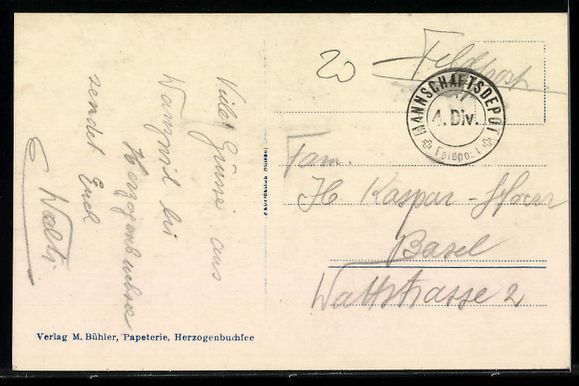 Viele Grüsse aus
Wanzwil bei
Herzogenbuchsee
sendet Euch
Walti
20 Feldpost
MANNSCHAFTSDEPOT
4. Div.
Feldpost
Fam.
H Kaspar-
Basel
Wattstrasse 2
Verlag M. Bühler, Papeterie, Herzogenbuchsee